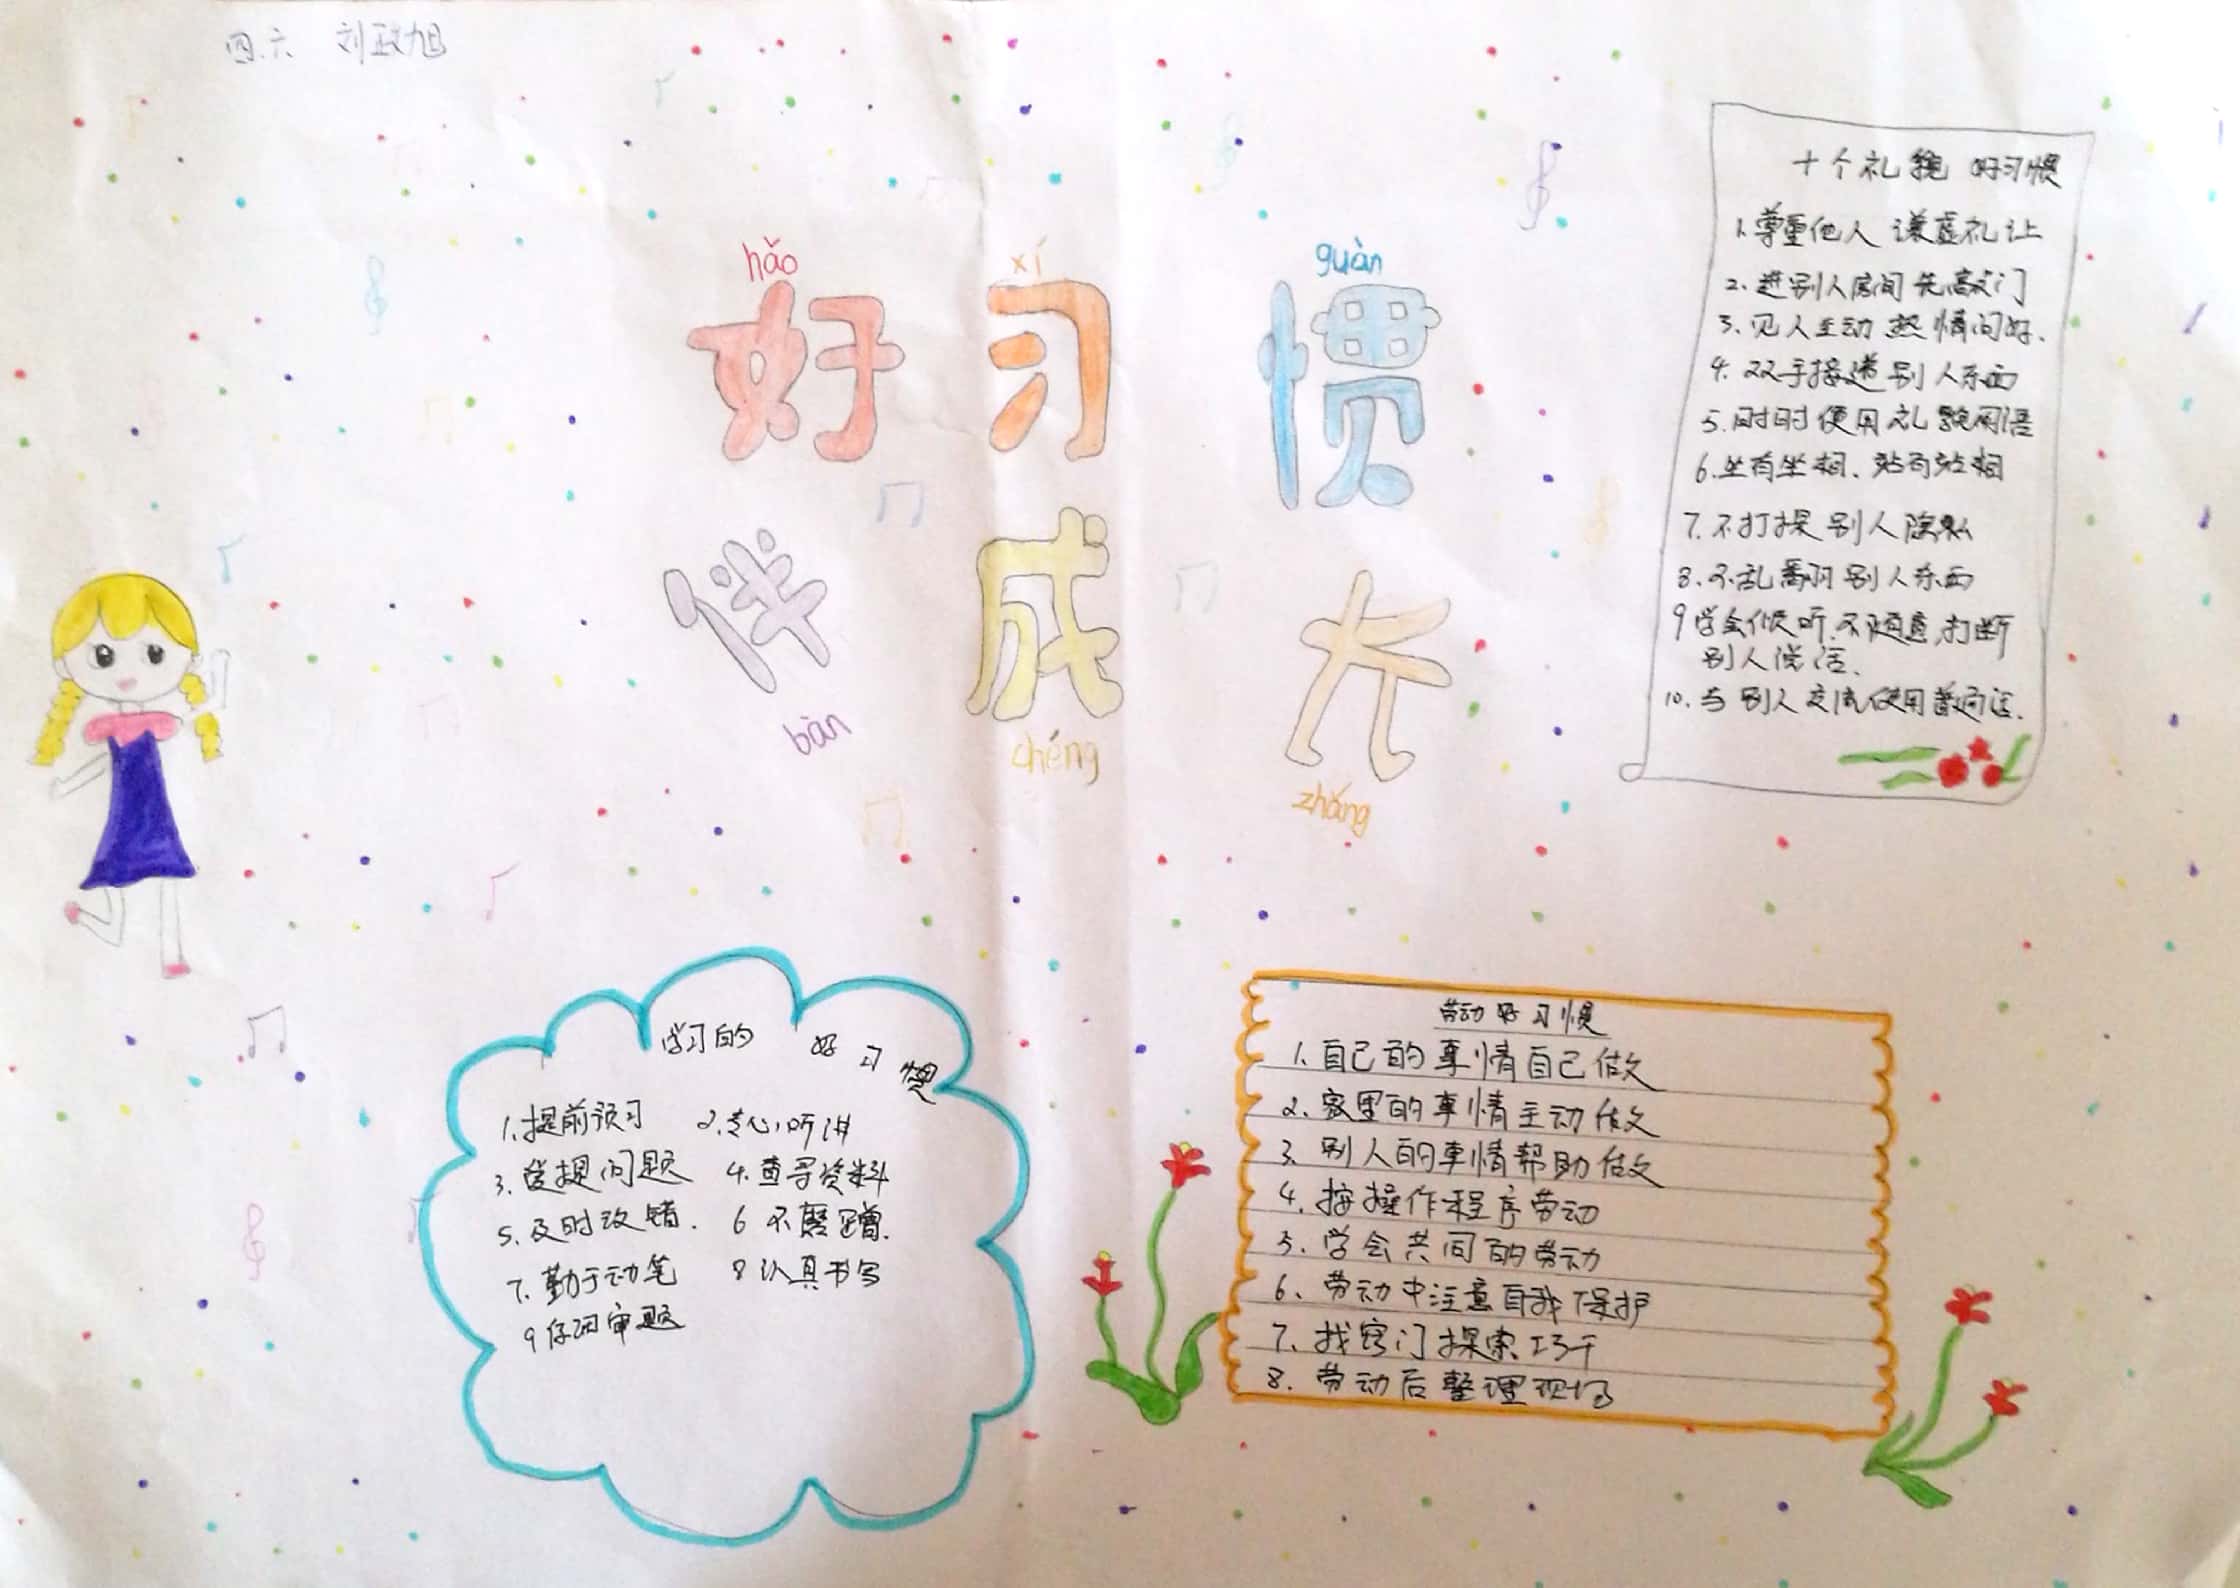 四.六 刘政旭
hǎo xí guàn
好习惯
伴成长
bàn chéng zhǎng
十个礼貌 好习惯
1.尊重他人 谦虚礼让
2.进别人房间先敲门
3.见人主动热情问好.
4.双手接递别人东西
5.时时使用礼貌用语
6.坐有坐相、站有站相
7.不打探别人隐私
8.不乱翻别人东西
9学会倾听.不随意打断
别人说话.
10.与别人交流使用普通话.
学习的 好习惯
1.提前预习 2.专心听讲
3.爱提问题 4.查寻资料
5.及时改错. 6不磨蹭.
7.勤于动笔 8认真书写
9仔细审题
劳动好习惯
1.自己的事情自己做
2.家里的事情主动做
3.别人的事情帮助做
4.按操作程序劳动
5.学会共同的劳动
6.劳动中注意自我保护
7.找窍门探索巧干
8.劳动后整理现场